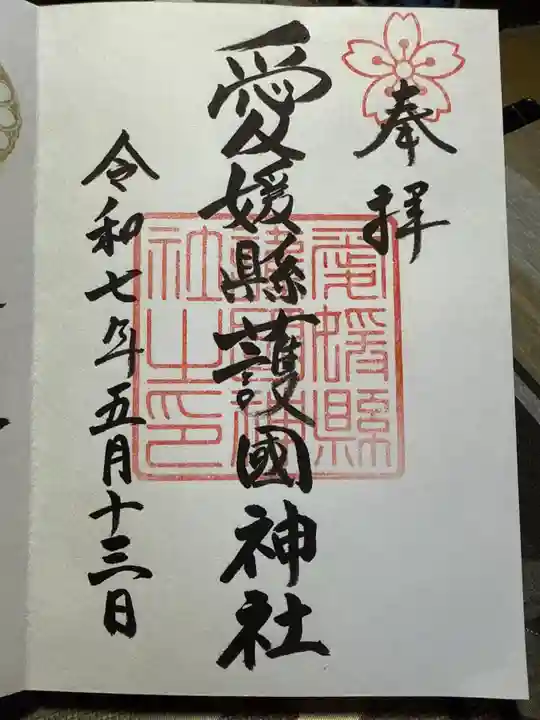 奉拝
愛媛縣護國神社
愛媛縣護國神社之印
令和七年五月十三日